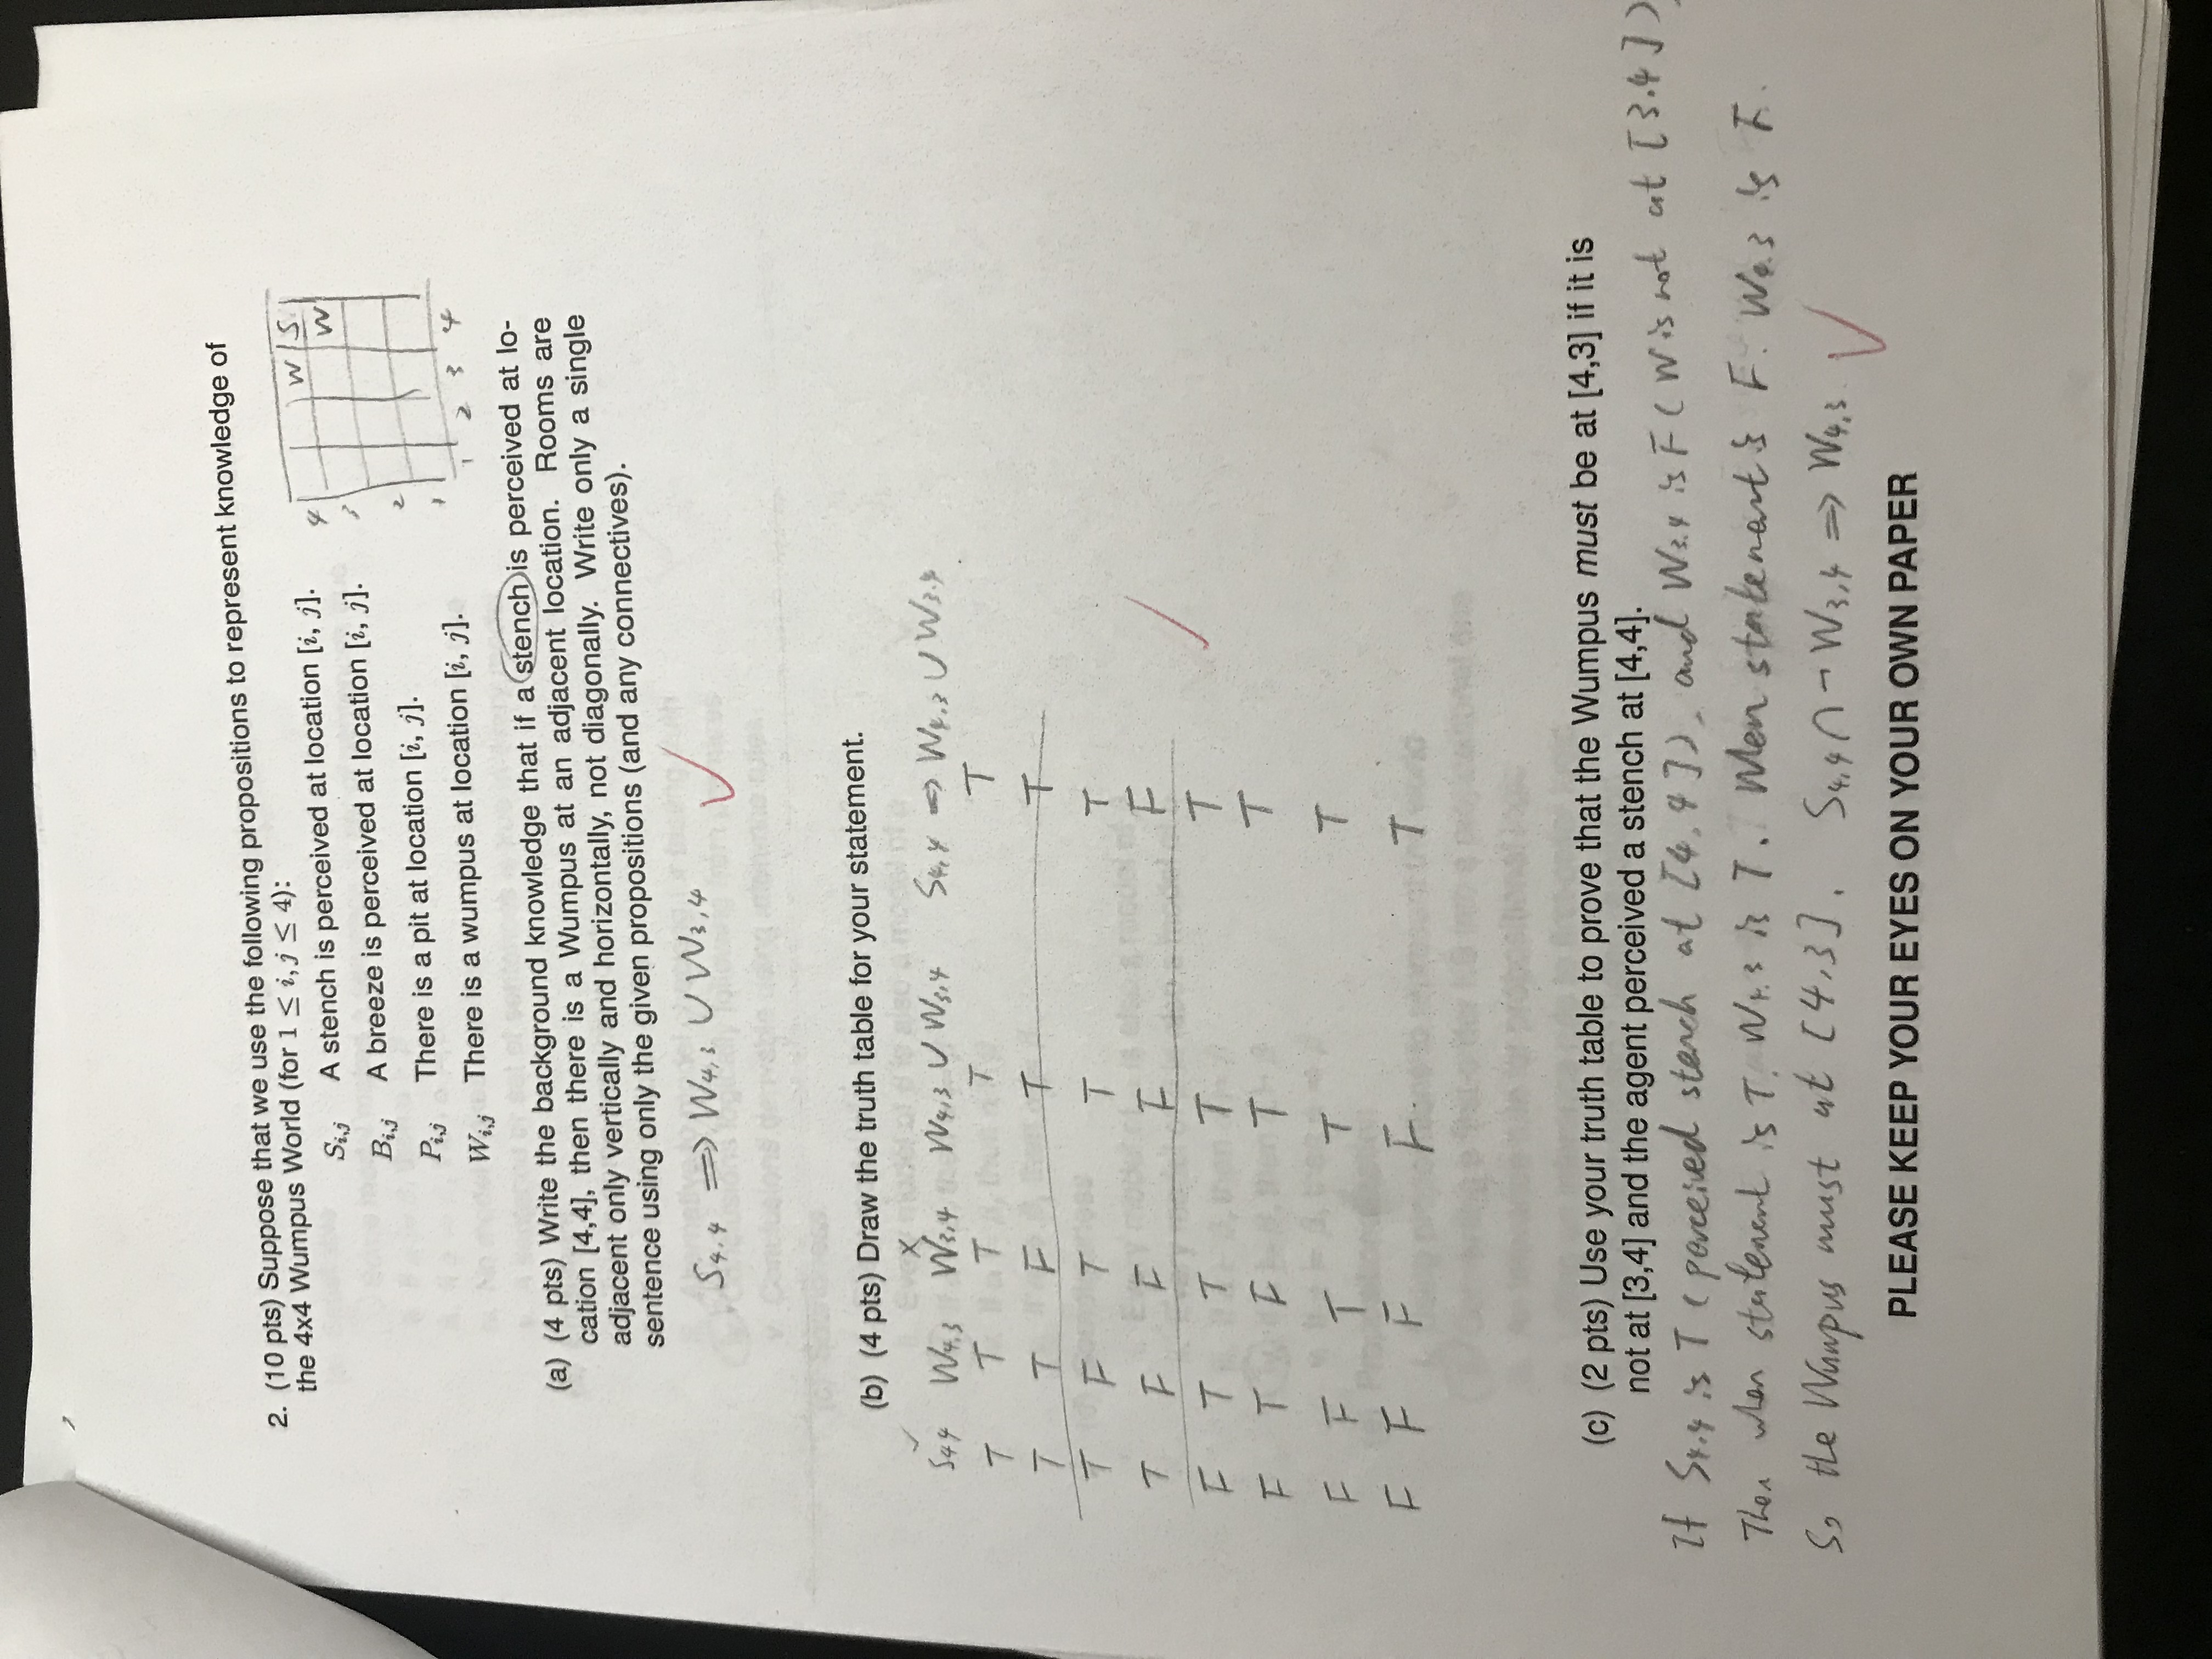 2. (10 pts) Suppose that we use the following propositions to represent knowledge of
the 4x4 Wumpus World (for 1 ≤ i, j ≤ 4):
S_{i,j} A stench is perceived at location [i, j].
B_{i,j} A breeze is perceived at location [i, j].
P_{i,j} There is a pit at location [i, j].
W_{i,j} There is a wumpus at location [i, j].
W S
4 W
3
2
1
1 2 3 4
(a) (4 pts) Write the background knowledge that if a stench is perceived at lo-
cation [4,4], then there is a Wumpus at an adjacent location. Rooms are
adjacent only vertically and horizontally, not diagonally. Write only a single
sentence using only the given propositions (and any connectives).
S4,4 ⇒ W4,3 ∪ W3,4 ✓
(b) (4 pts) Draw the truth table for your statement.
✓ x
S44 W4,3 W3,4 W4,3 ∪ W3,4 S4,4 ⇒ W4,3 ∪ W3,4
T T T T T
T T F T T
T F T T T
T F F F F
F T T T T
F T F T T
F F T T T
F F F F. T
(c) (2 pts) Use your truth table to prove that the Wumpus must be at [4,3] if it is
not at [3,4] and the agent perceived a stench at [4,4].
If S4,4 is T (perceived stench at [4,4]), and W3,4 is F (W is not at [3.4]),
Then when statement is T, W4.3 is T. When statement is F. W4.3 is F.
So the Wumpus must at [4,3]. S4,4 ∩ ¬ W3,4 ⇒ W4,3. ✓
PLEASE KEEP YOUR EYES ON YOUR OWN PAPER